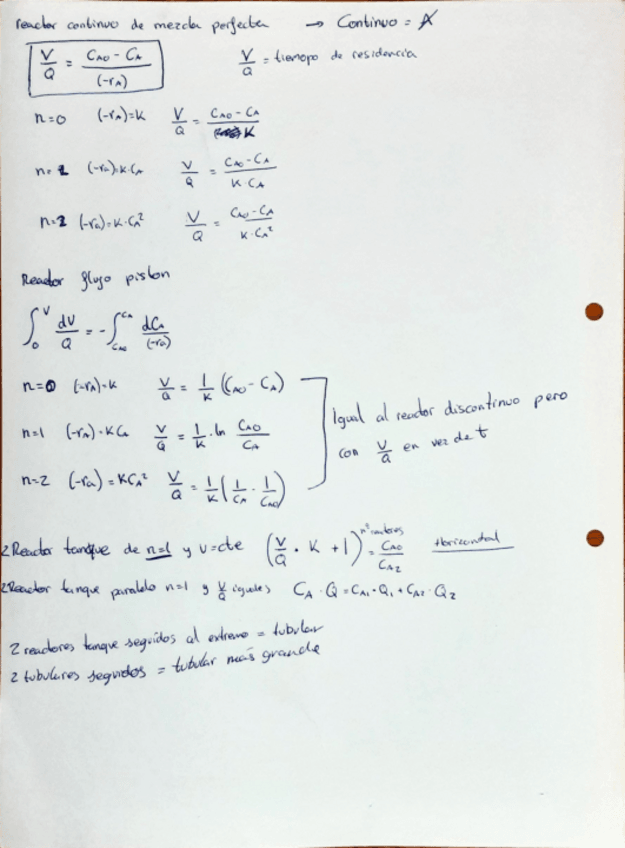 reactor continuo de mezcla perfecta → Continuo = A
V/Q = (CA0 - CA)/(-rA)    V/Q = tiempo de residencia
n=0 (-rA)=K V/Q = (CA0 - CA)/K
n=1 (-ra)=K·CA V/Q = (CA0 - CA)/(K·CA)
n=2 (-ra)=K·CA² V/Q = (CA0 - CA)/(K·CA²)
Reactor flujo piston
∫₀^V dV/Q = -∫_CA0^CA dCA/(-ra)
n=0 (-rA)=K V/Q = 1/K (CA0 - CA)
n=1 (-rA)=KCA V/Q = 1/K · ln CA0/CA
n=2 (-ra)=KCA² V/Q = 1/K (1/CA - 1/CA0)
Igual al reactor discontinuo pero
con V/Q en vez de t
2 Reactor tanque de n=1 y v=cte (V/Q · K + 1)^(nº reactores) = CA0/CA2 Horizontal
2 Reactor tanque paralelo n=1 y V/Q iguales CA · Q = CA1 · Q1 + CA2 · Q2
2 reactores tanque seguidos al extremo = tubular
2 tubulares seguidos = tubular más grande